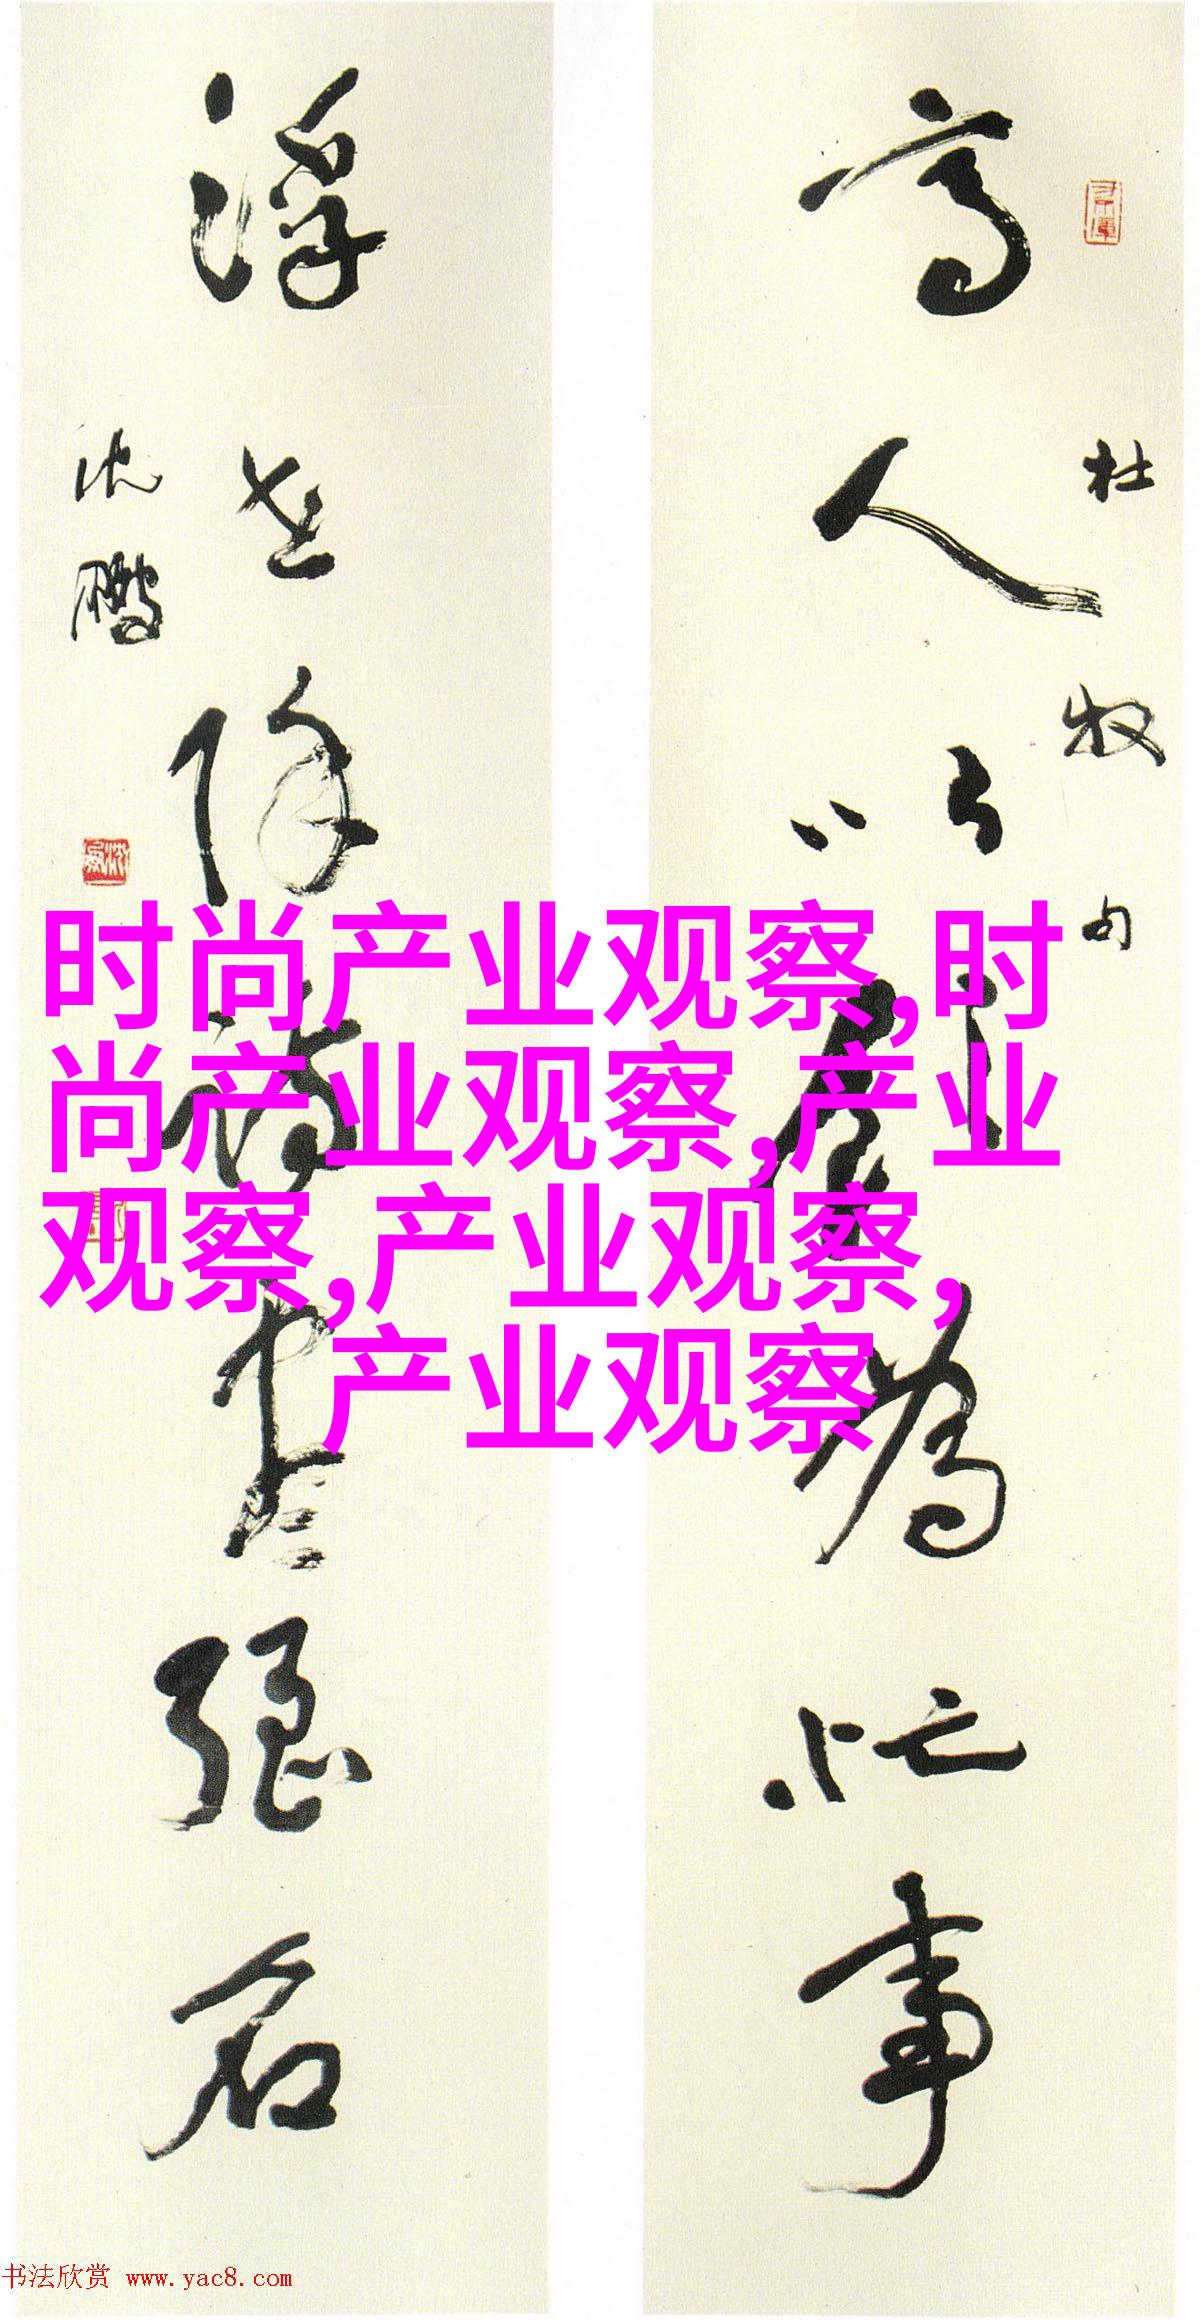 杜牧句
高人以飲為忙事
浮世除詩盡強名
沈鵬
时尚产业观察,时
尚产业观察,产业
观察,产业观察,
产业观察
书法欣赏 www.yac8.com